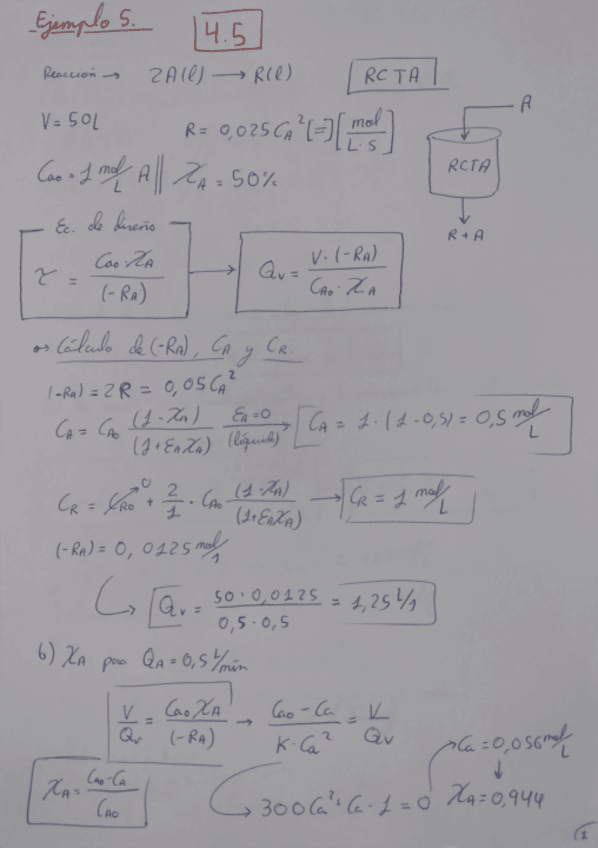 Ejemplo 5.
4.5
Reacción → 2A(l) → R(l)
RCTA
A
V = 50L
R = 0,025 C_A^2 [=] [mol/L·s]
C_A0 = 1 mol/L A || X_A = 50%
RCTA
R + A
Ec. de diseño
τ = C_A0·X_A/(-R_A) → Q_v = V·(-R_A)/(C_A0·X_A)
Cálculo de (-R_A), C_A y C_R.
(-R_A) = 2R = 0,05 C_A^2
C_A = C_A0 (1-X_A)/(1+ε_A X_A) ε_A=0 (líquido) → C_A = 1·(1-0,5) = 0,5 mol/L
C_R = C_R0 →0 + 2/1 · C_A0 (1-X_A)/(1+ε_A X_A) → C_R = 1 mol/L
(-R_A) = 0,0125 mol/s
Q_v = 50·0,0125/(0,5·0,5) = 1,25 L/s
b) X_A para Q_A = 0,5 L/min
V/Q_v = C_A0 X_A/(-R_A) → (C_A0 - C_A)/(K·C_A^2) = V/Q_v
X_A = (C_A0 - C_A)/C_A0
300 C_A^2 + C_A - 1 = 0
C_A = 0,056 mol/L
X_A = 0,944
1